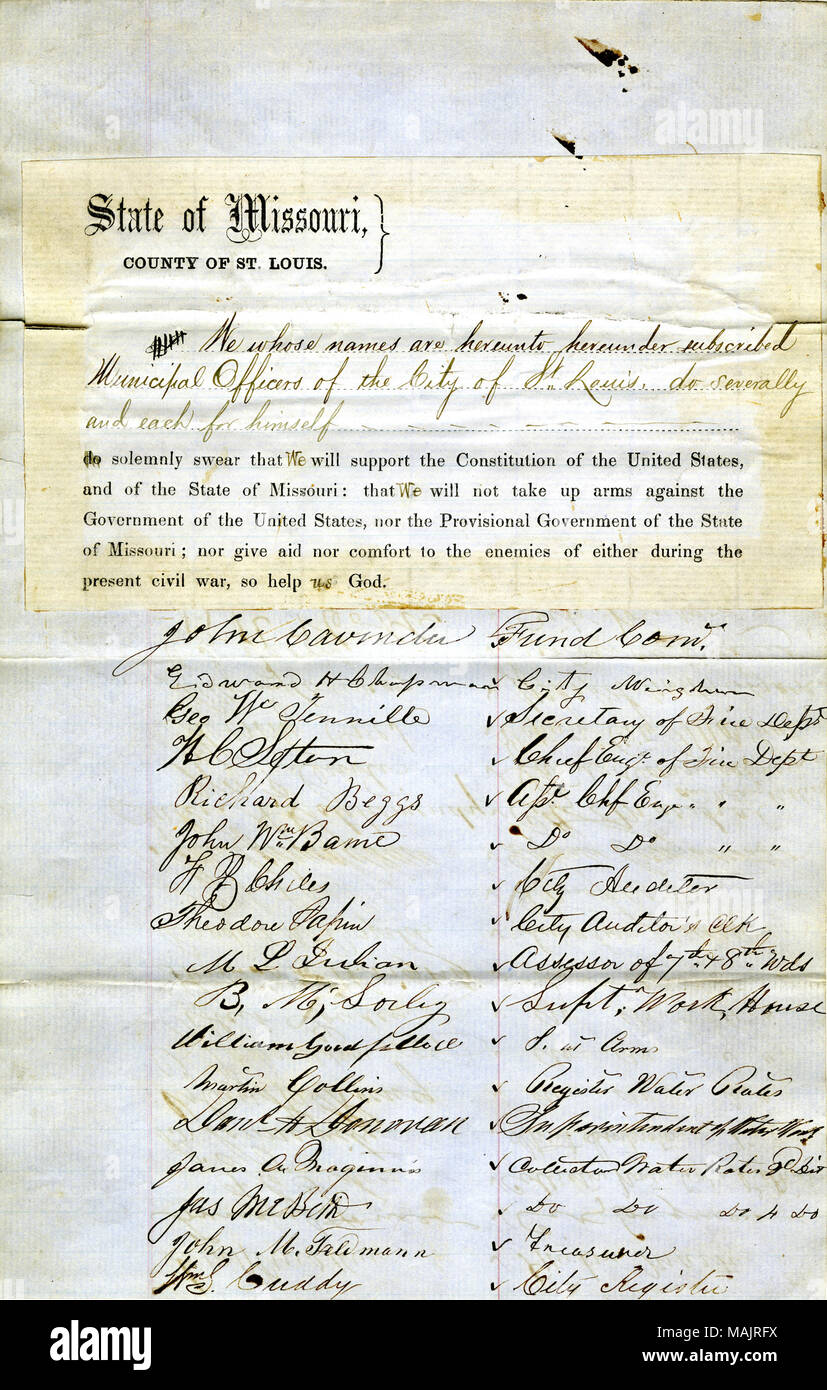 State of Missouri,
COUNTY OF ST. LOUIS.
We whose names are hereunto hereunder subscribed
Municipal Officers of the City of St. Louis, do severally
and each for himself
do solemnly swear that We will support the Constitution of the United States,
and of the State of Missouri: that We will not take up arms against the
Government of the United States, nor the Provisional Government of the State
of Missouri; nor give aid nor comfort to the enemies of either during the
present civil war, so help us God.
John Cavender Fund Comr.
Edward H Chapman ✓ City
Geo Wm Tennille ✓ Secretary of Fire Dept
H C Sexton ✓ Chief Engr of Fire Dept
Richard Beggs ✓ Asst. Chf Engr " "
John Wm Bame ✓ Do Do " "
Chiles ✓ City Auditor
Theodore Papin ✓ City Auditor's Clk
M L Julian ✓ Assessor of 7th & 8th Wds
B, Mc, Sorley ✓ Supt, Work, House
William ✓ S. at Arms
Martin Collins ✓ Register Water Rates
Danl H Donovan ✓ Superintendent of Water Works
James A Maginnis ✓ Collector Water Rates
Jas Mc ✓ Do Do Do 4 Do
John M. Feldmann ✓ Treasurer
Wm S. Cuddy ✓ City Register
alamy
Image ID: MAJRFX
www.alamy.com